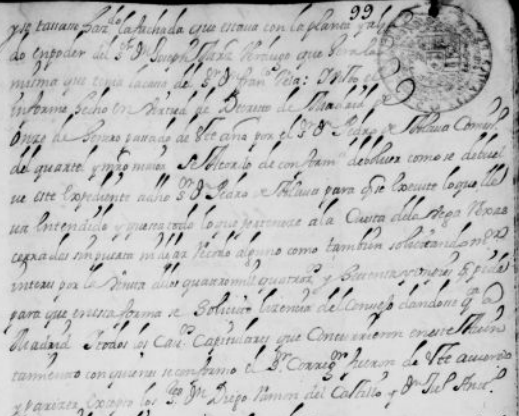 99
y se tassasse haz.do la fachada que estava con la planta y
do en poder del S.r D.n Joseph Mar.z Verdugo que sera la
misma que tenia la casa del S.r D.n Fran.co Vela: Visto el
informe hecho en Virtud de Decreto de Madrid de
onze de henero passado de este año por el S.r D.n Pedro de Alava
del quartel y Mro maior Se Acordo de conform.d debolver como se debuel
ve este Expediente a dho S.r D.n Pedro de Alava para q se execute lo que lle
va entendido y que sea todo lo que pertenece a la Cuesta de la Vega
cerradas sin puerta ni dejar alguno como tambien solicitando
interes por la Venta de los quatro mil quatroz.s y setenta y tres q pide
para que en esta forma se Solicite lizencia del Consejo dandose q.ta a
Madrid Y todos los Cav.s Capitulares que Concurrieron en este Aiun
tamiento con quienes se conformo el S.r Correg.r fueron de este acuerdo
y parezer, excepto los S.res D.n Diego Ramon del Castillo y D.n